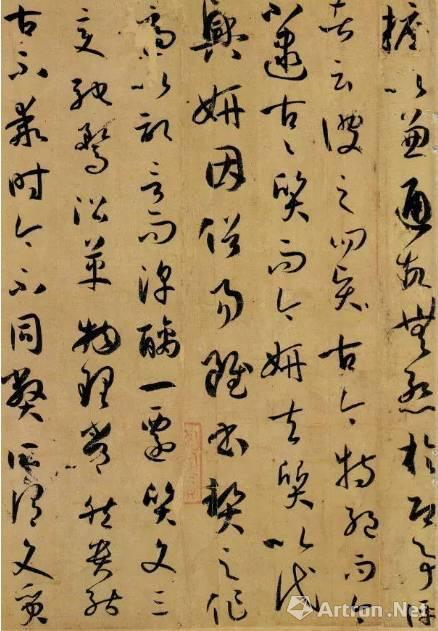 擅以兼通故無慚於即事評
者云彼之四賢古今特絕而今
不逮古〻質而今妍夫質以代
興妍因俗易雖書契之作
適以記言而淳醨一遷質文三
變馳騖沿革物理常然貴能
古不乖時今不同弊所謂文質
Artron.Net